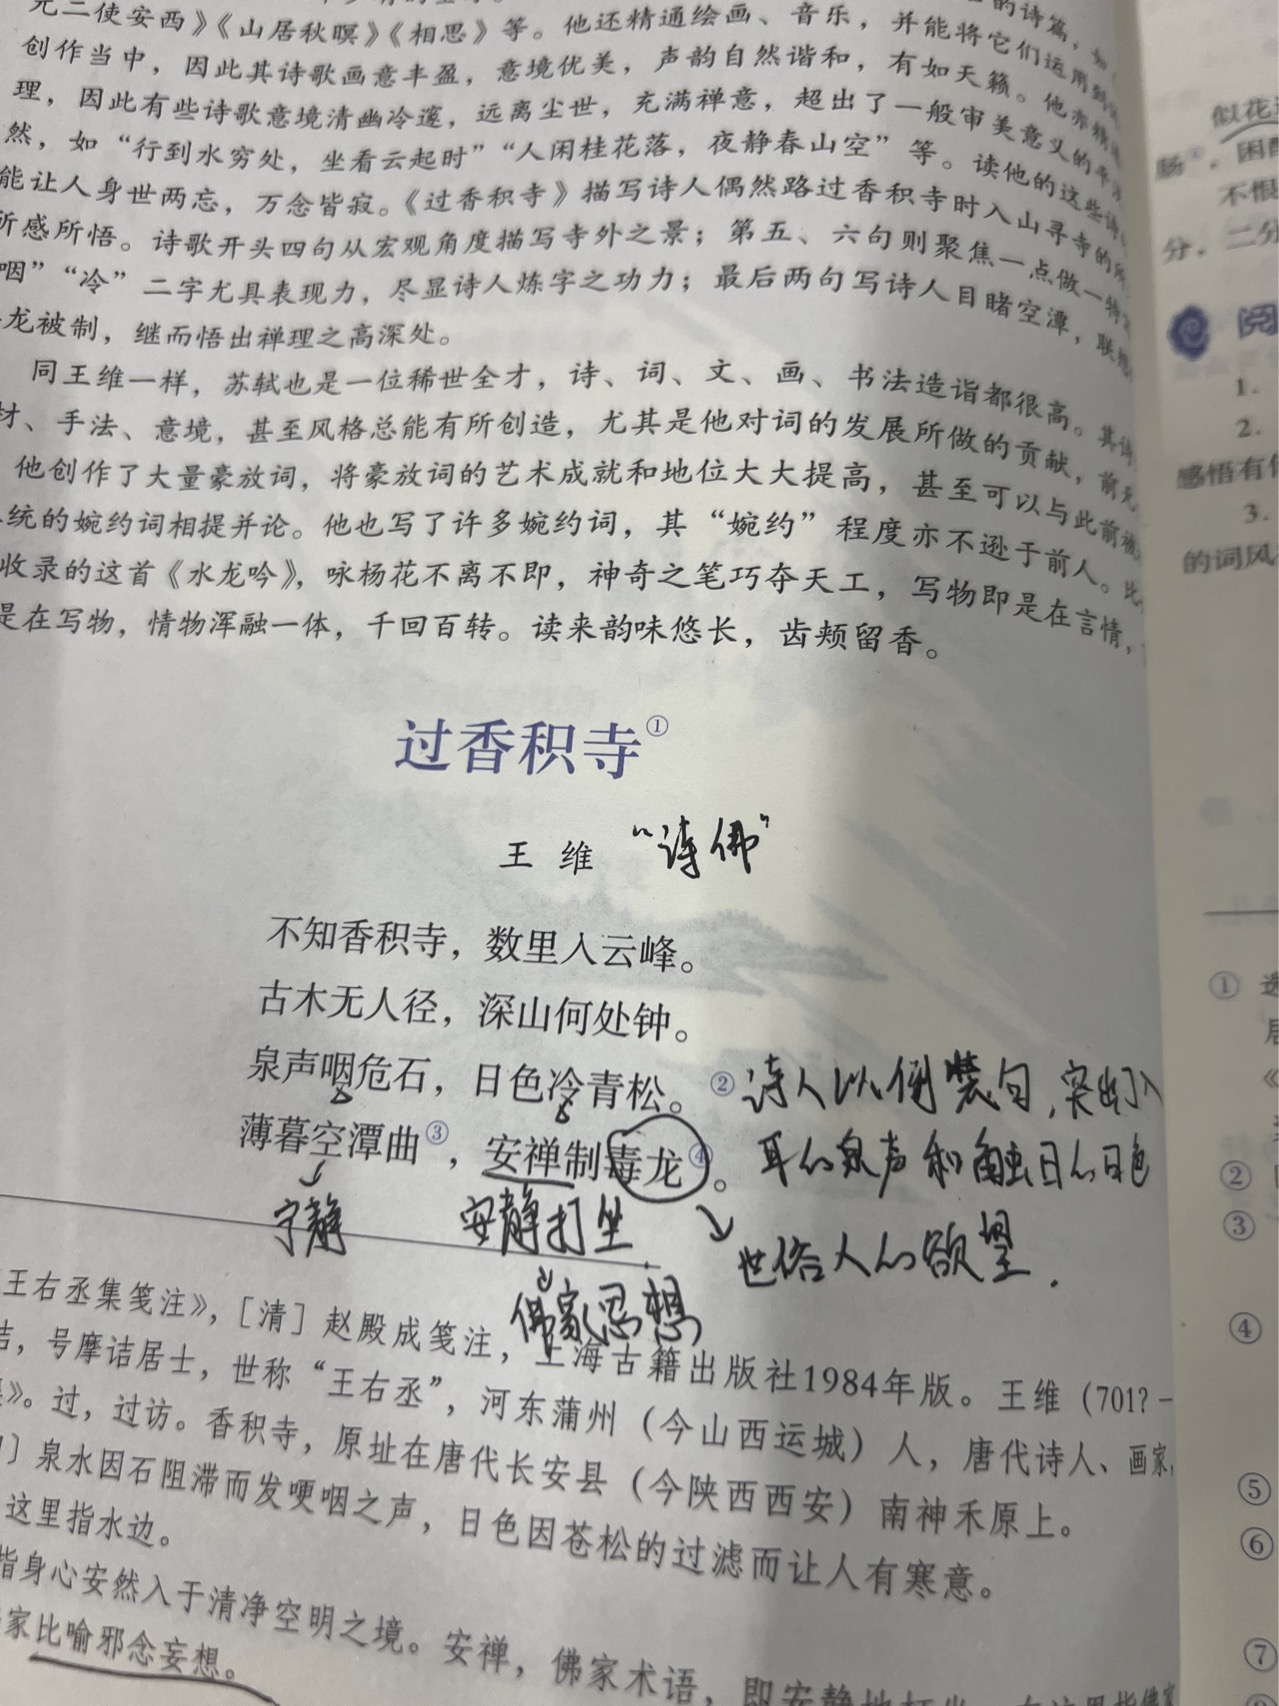 元二使安西》《山居秋暝》《相思》等。他还精通绘画、音乐，并能将它们运用到
创作当中，因此其诗歌画意丰盈，意境优美，声韵自然谐和，有如天籁。他亦精
理，因此有些诗歌意境清幽冷邃，远离尘世，充满禅意，超出了一般审美意义的
然，如“行到水穷处，坐看云起时”“人闲桂花落，夜静春山空”等。读他的这些诗
能让人身世两忘，万念皆寂。《过香积寺》描写诗人偶然路过香积寺时入山寻寺的所
所感所悟。诗歌开头四句从宏观角度描写寺外之景；第五、六句则聚焦一点做一特
咽”“冷”二字尤具表现力，尽显诗人炼字之功力；最后两句写诗人目睹空潭，联想
龙被制，继而悟出禅理之高深处。
同王维一样，苏轼也是一位稀世全才，诗、词、文、画、书法造诣都很高。其诗
材、手法、意境，甚至风格总能有所创造，尤其是他对词的发展所做的贡献，前无
他创作了大量豪放词，将豪放词的艺术成就和地位大大提高，甚至可以与此前被
统的婉约词相提并论。他也写了许多婉约词，其“婉约”程度亦不逊于前人。比
收录的这首《水龙吟》，咏杨花不离不即，神奇之笔巧夺天工，写物即是在言情，
是在写物，情物浑融一体，千回百转。读来韵味悠长，齿颊留香。
过香积寺①
王维 “诗佛”
不知香积寺，数里入云峰。
古木无人径，深山何处钟。
泉声咽危石，日色冷青松。② 诗人以倒装句，突出入
薄暮空潭曲③，安禅制毒龙④。 耳的泉声和触目的日色
宁静 安静打坐 世俗人的欲望.
佛家思想
王右丞集笺注》，［清］赵殿成笺注，上海古籍出版社1984年版。王维（701?－
诘，号摩诘居士，世称“王右丞”，河东蒲州（今山西运城）人，唐代诗人、画家，
》。过，过访。香积寺，原址在唐代长安县（今陕西西安）南神禾原上。
］泉水因石阻滞而发哽咽之声，日色因苍松的过滤而让人有寒意。
这里指水边。
指身心安然入于清净空明之境。安禅，佛家术语，即安静地打坐，在这里指佛家
家比喻邪念妄想。
似花
肠
不恨
分，二分
阅
1.
2.
感悟有
3.
的词风
①
②
③
④
⑤
⑥
⑦